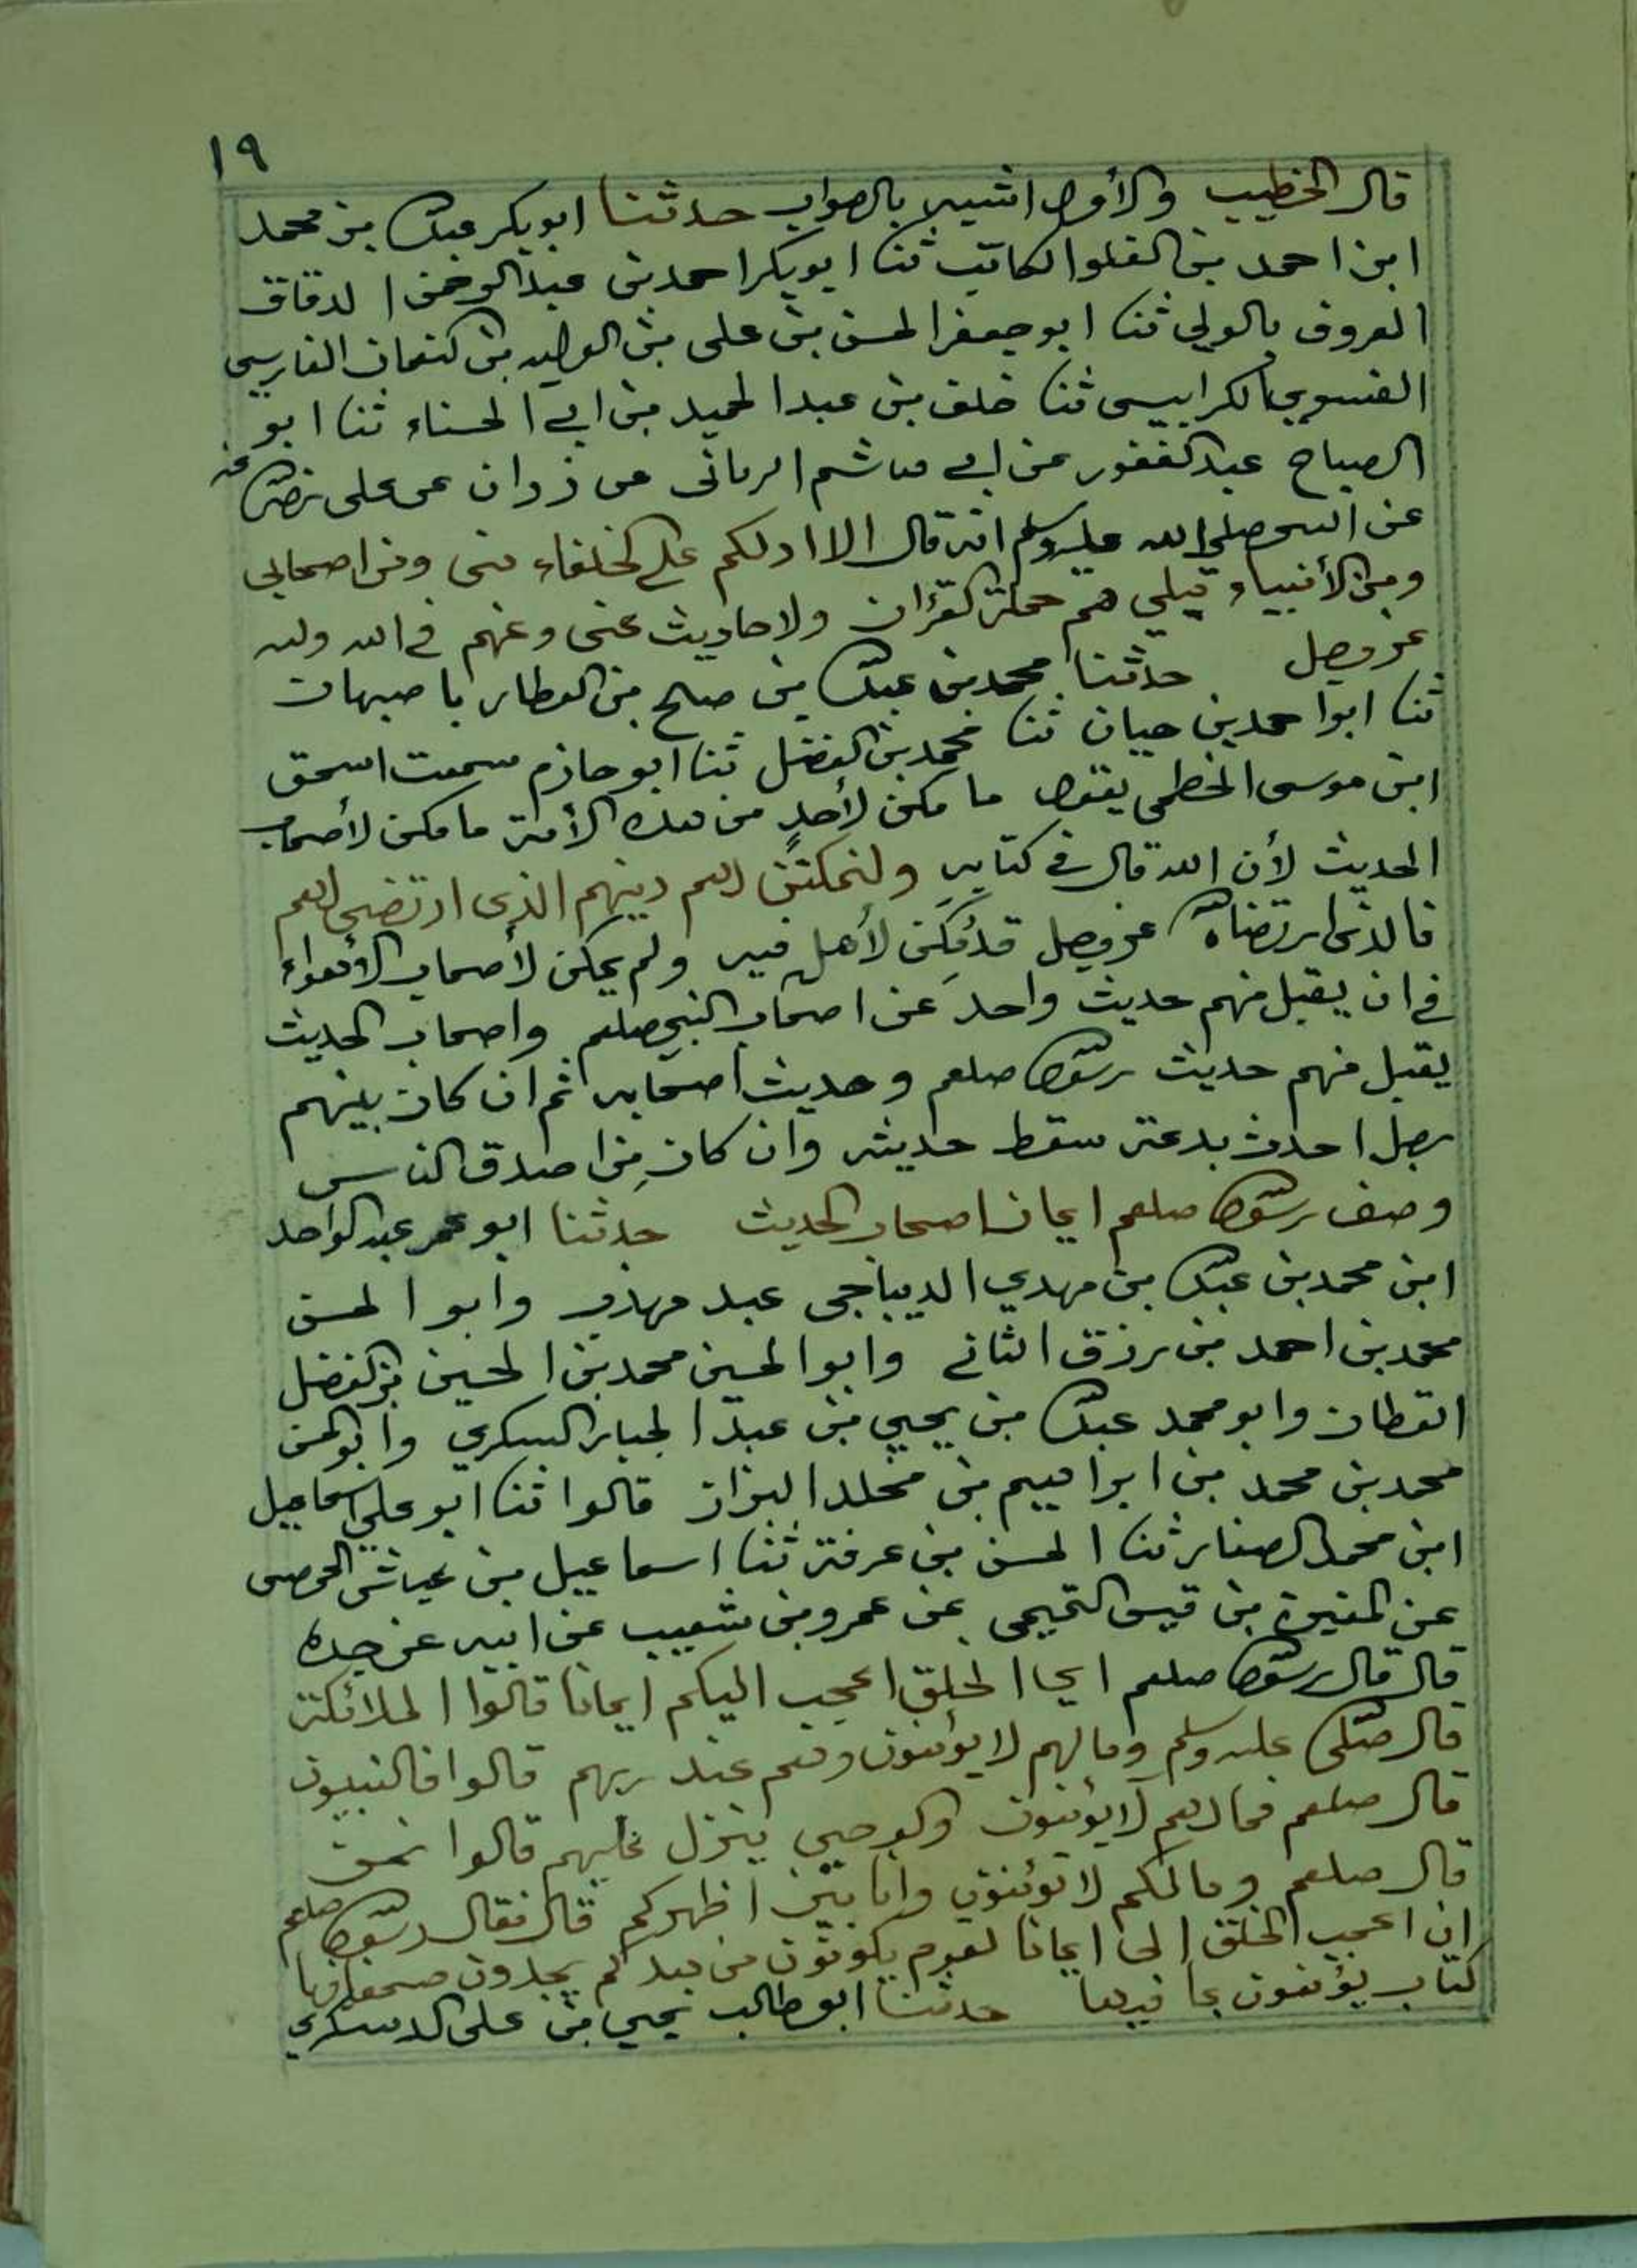 ١٩
قال الخطيب والأول اشبه بالصواب حدثنا ابو بكر عبد الله بن محمد
ابن احمد بن الفلو الكاتب ثنا ابو بكر احمد بن عبد الرحمن الدقاق
المعروف بالولي ثنا ابو جعفر الحسن بن علي بن الوليد بن كنعمان الفارسي
الفسوي بالكرابيسى ثنا خلف بن عبد الحميد بن ابي الحسناء ثنا ابو
الصباح عبد الغفور عن ابي هاشم الرمانى عن زوان عن على رضى الله عنه
عن النبى صلى الله عليه وسلم انه قال الا ادلكم على الخلفاء منى ومن اصحابى
ومن الأنبياء قبلي هم حملة القرءان ولاحاديث عنى وعنهم في الله ولله
عز وجل حدثنا محمد بن عبد الله بن صلح بن العطار باصبهان
ثنا ابو احمد بن حيان ثنا محمد بن الفضل ثنا ابو حازم سمعت اسحق
ابن موسى الخطمى يقول ما مكن لأحد من هذه الأمة ما مكن لأصحاب
الحديث لأن الله قال في كتابه وليمكنن لهم دينهم الذى ارتضى لهم
فالذى ارتضاه الله عز وجل قد مكن لأهل فيه ولم يمكن لأصحاب الأهواء
في ان يقبل منهم حديث واحد عن اصحاب النبي صلعم واصحاب الحديث
يقبل منهم حديث رسول الله صلعم وحديث اصحابه ثم ان كان بينهم
رجل احدث بدعة سقط حديثه وان كان من اصدق الناس
وصف رسول الله صلعم ايمان اصحاب الحديث حدثنا ابو عمر عبد الواحد
ابن محمد بن عبد الله بن مهدي الديباجى عبد مهذب وابو الحسن
محمد بن احمد بن رزق الثاني وابو الحسين محمد بن الحسين بن الفضل
القطان وابو محمد عبد الله بن يحيي بن عبد الجبار السكري وابو الحسن
محمد بن محمد بن ابراهيم بن مخلد البزاز قالوا ثنا ابو علي اسماعيل
ابن محمد الصفار ثنا الحسن بن عرفة ثنا اسماعيل بن عياش الحمصى
عن المغيرة بن قيس التميمى عن عمرو بن شعيب عن ابيه عن جده
قال قال رسول الله صلعم اى الخلق اعجب اليكم ايمانا قالوا الملائكة
قال صلى الله عليه وسلم ومالهم لا يؤمنون وهم عند ربهم قالوا فالنبيون
قال صلعم فمالهم لا يؤمنون والوحي ينزل عليهم قالوا نحن
قال صلعم ومالكم لا تؤمنون وانا بين اظهركم قال فقال رسول الله صلعم
ان اعجب الخلق الى ايمانا لقوم يكونون من بعدكم يجدون صحفا فيها
كتاب يؤمنون بما فيها حدثنا ابو طالب يحيي بن على الدسكري